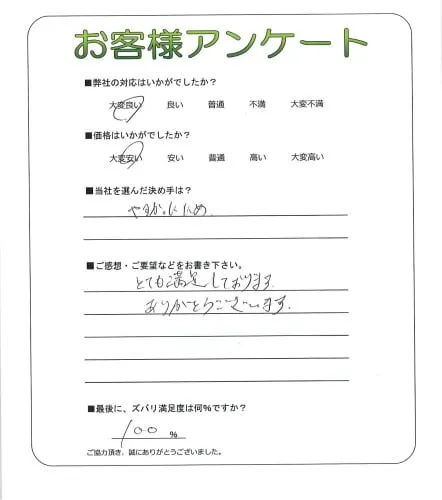 お客様アンケート
■弊社の対応はいかがでしたか？
大変良い 良い 普通 不満 大変不満
■価格はいかがでしたか？
大変安い 安い 普通 高い 大変高い
■当社を選んだ決め手は？
やすかったため
■ご感想・ご要望などをお書き下さい。
とても満足しております.
ありがとうございます.
■最後に、ズバリ満足度は何%ですか？
100 %
ご協力頂き、誠にありがとうございました。